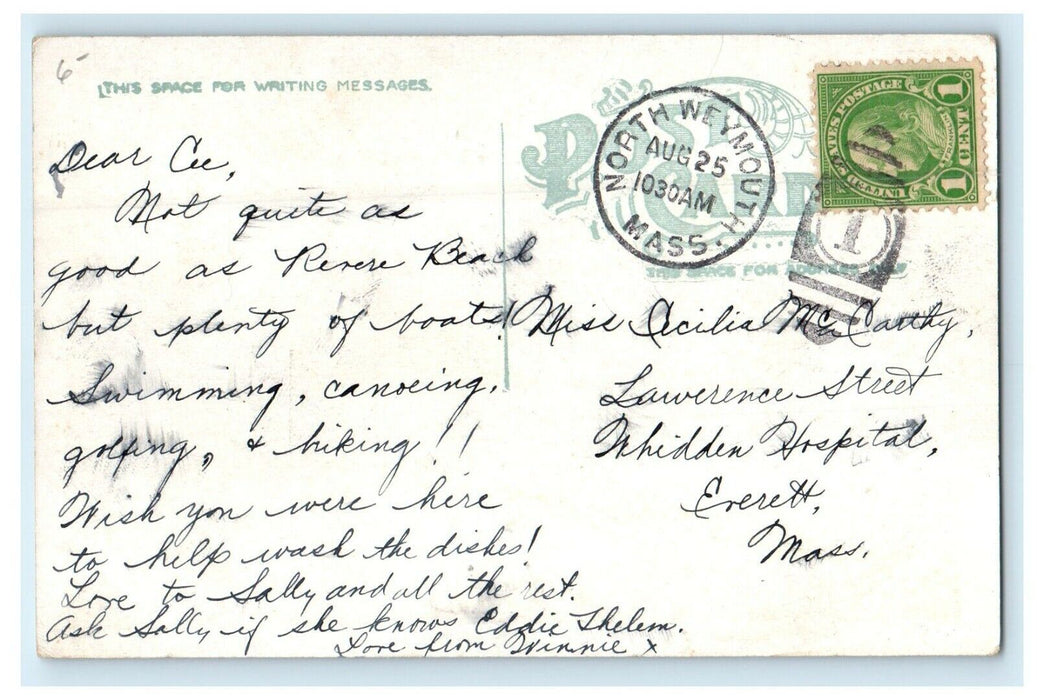 6
THIS SPACE FOR WRITING MESSAGES.
Dear Cee,
Not quite as
good as Revere Beach
but plenty of boats!
Swimming, canoeing,
golfing, & hiking!!
Wish you were here
to help wash the dishes!
Love to Sally and all the rest.
Ask Sally if she knows Eddie Thelem.
Love from Winnie x
POST CARD
NORTH WEYMOUTH
AUG 25
1030AM
MASS.
STATES POSTAGE
1 1
CENT
1
THIS SPACE FOR ADDRESS ONLY
Miss Cecilia McCarthy,
Lawerence Street
Whidden Hospital,
Everett,
Mass.